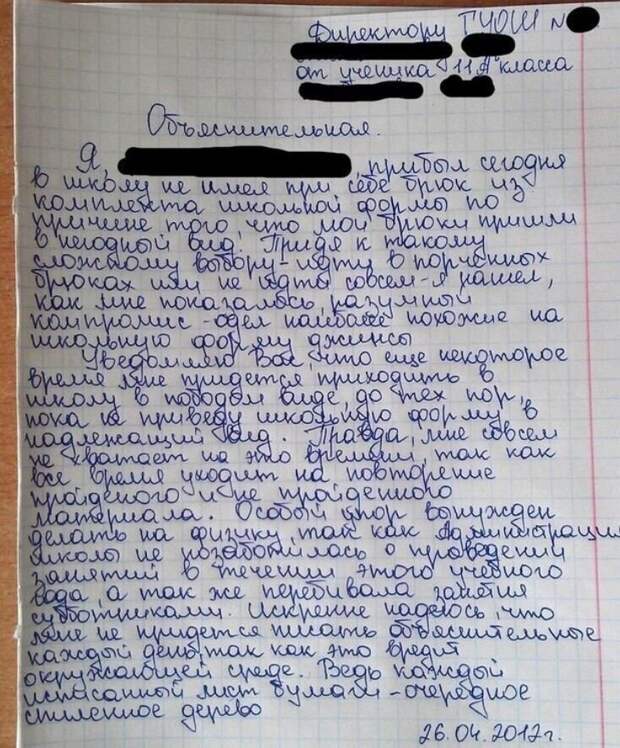 Директору ГУОШ №
от ученика 11 "А" класса
Объяснительная.
Я, , прибыл сегодня
в школу не имея при себе брюк из
комплекта школьной формы по
причине того, что мои брюки пришли
в негодный вид. Придя к такому
сложному выбору - идти в порченных
брюках или не идти совсем - я нашел,
как мне показалось, разумный
компромис - одел наиболее похожие на
школьную форму джинсы
Уведомляю Вас, что еще некоторое
время мне придется приходить в
школу в подобом виде, до тех пор,
пока не приведу школьную форму в
надлежащий вид. Правда, мне совсем
не хватает на это времени, так как
все время уходит на повторение
пройденого и не пройденного
материала. Особый упор вынужден
делать на физику, так как Администрация
школы не позаботилась о проведении
занятий в течении этого учебного
года, а так же перебивала занятия
субботниками. Искренне надеюсь, что
мне не придется писать объяснительные
каждый день, так как это вредит
окружающей среде. Ведь каждый
исписанный лист бумаги - очередное
спиленное дерево
26.04.2012г.